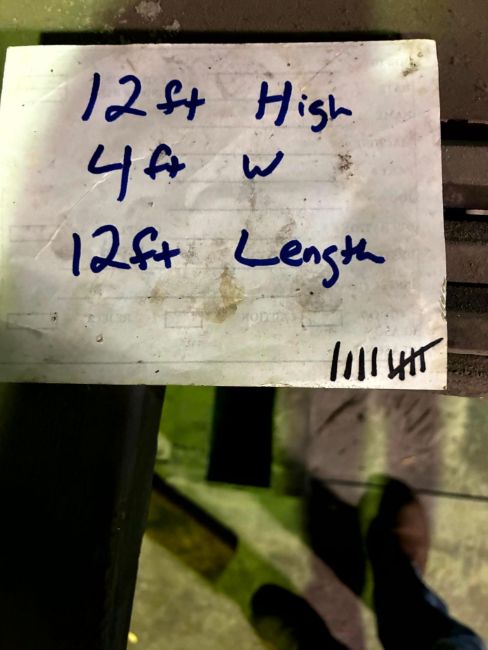 12ft High
4ft W
12ft Length